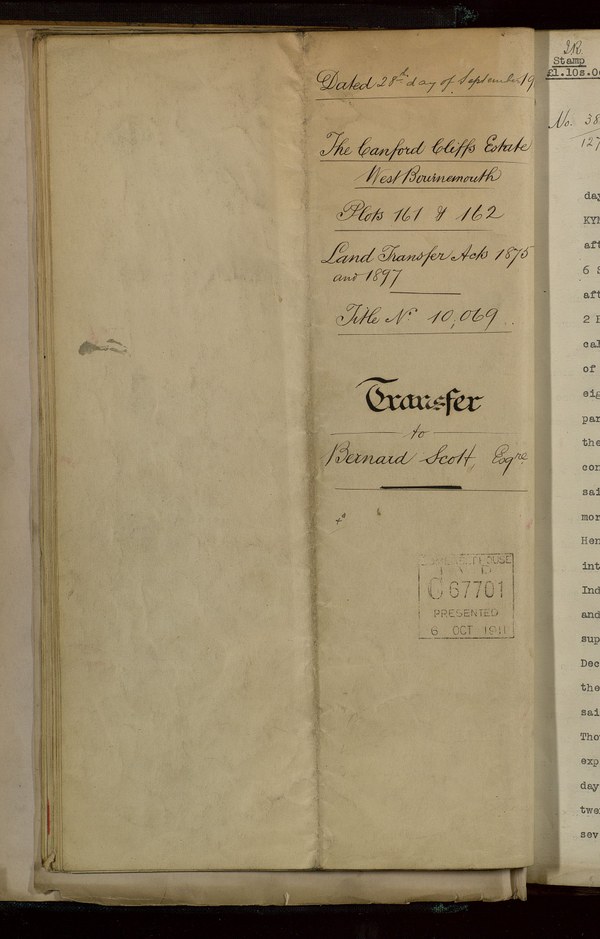 Dated 28th day of September 19
The Canford Cliffs Estate
West Bournemouth
Plots 161 & 162
Land Transfer Acts 1875
and 1897
Title No 10,069
Transfer
to
Bernard Scott, Esqre
HOUSE
C 67701
PRESENTED
6 OCT 1911
2R
Stamp
£1.10s.0
No. 38
127
day
KYN
aft
6 S
aft
2 E
cal
of
eig
par
the
con
sai
mor
Hen
int
Ind
and
sup
Dec
the
sai
Tho
exp
day
twe
sev